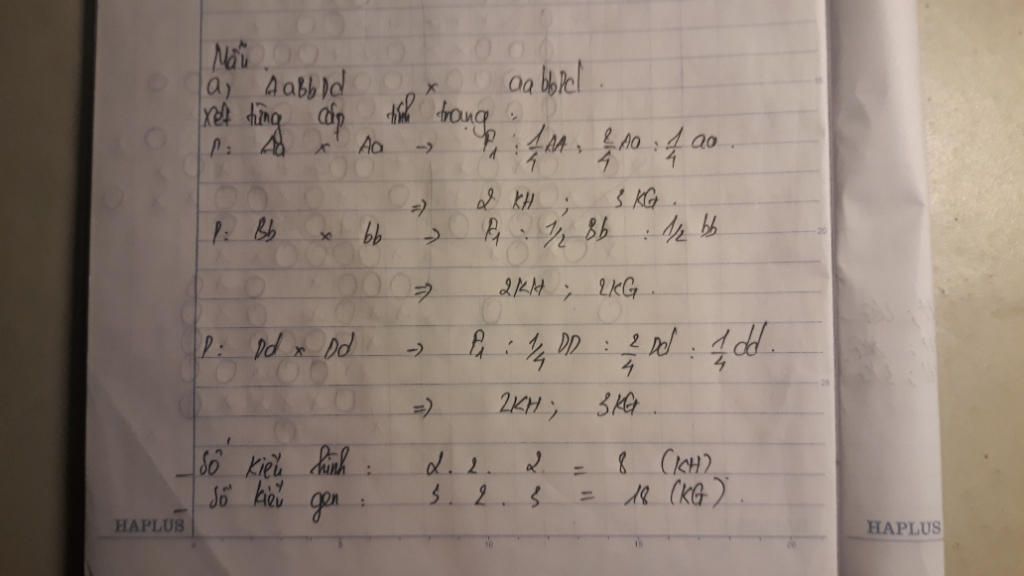 Mẫu.
a, AaBbDd × aabbDd.
xét từng cặp tính trạng:
P: Aa × Aa → F1: 1/4 AA : 2/4 Aa : 1/4 aa.
=> 2 KH; 3 KG.
P: Bb × bb → F1: 1/2 Bb : 1/2 bb
=> 2KH; 2KG.
P: Dd × Dd → F1: 1/4 DD : 2/4 Dd : 1/4 dd.
=> 2KH; 3KG.
- Số kiểu hình: 2. 2. 2 = 8 (KH)
- Số kiểu gen: 3. 2. 3 = 18 (KG).
HAPLUS HAPLUS